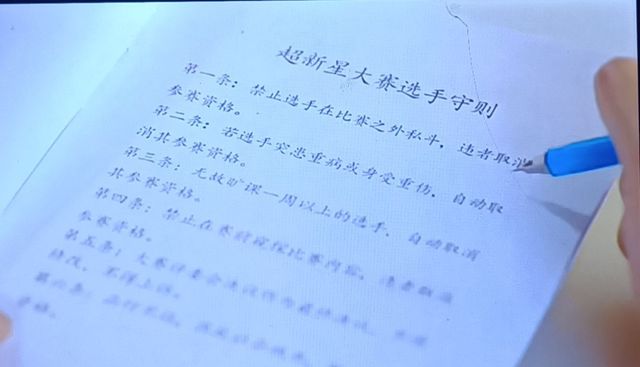 超新星大赛选手守则
第一条：禁止选手在比赛之外私斗，违者取消
参赛资格。
第二条：若选手突患重病或身受重伤，自动取
消其参赛资格。
第三条：无故旷课一周以上的选手，自动取消
其参赛资格。
第四条：禁止在赛前窥探比赛内容，违者取消
参赛资格。
第五条：大赛评委会决议作为最终决议，不得